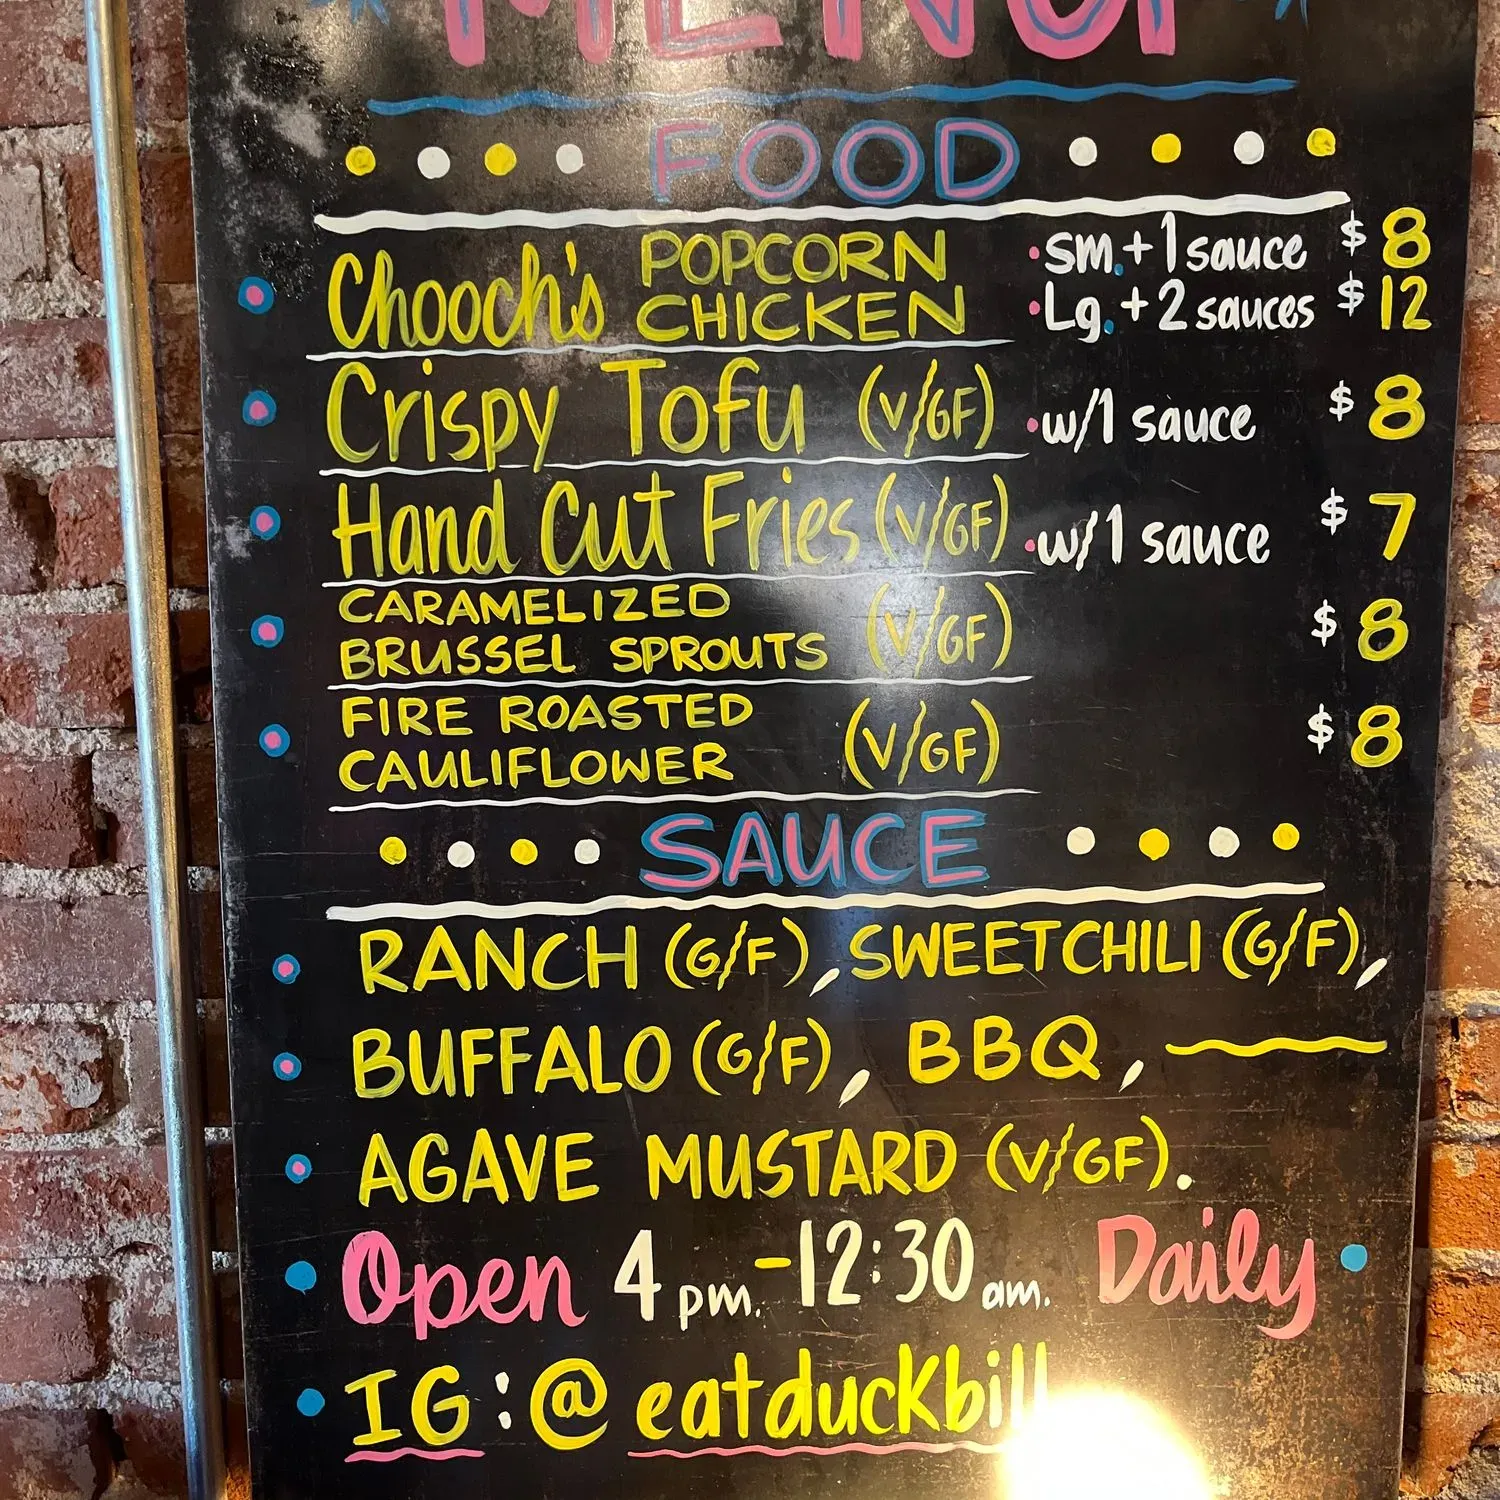 MENU
FOOD
Chooch's POPCORN CHICKEN
• sm. + 1 sauce $ 8
• Lg. + 2 sauces $ 12
Crispy Tofu (V/GF) • w/1 sauce $ 8
Hand Cut Fries (V/GF) • w/1 sauce $ 7
CARAMELIZED
BRUSSEL SPROUTS (V/GF) $ 8
FIRE ROASTED
CAULIFLOWER (V/GF) $ 8
SAUCE
RANCH (G/F), SWEET CHILI (G/F),
BUFFALO (G/F), BBQ,
AGAVE MUSTARD (V/GF).
Open 4 pm. - 12:30 am. Daily
IG: @eatduckbill